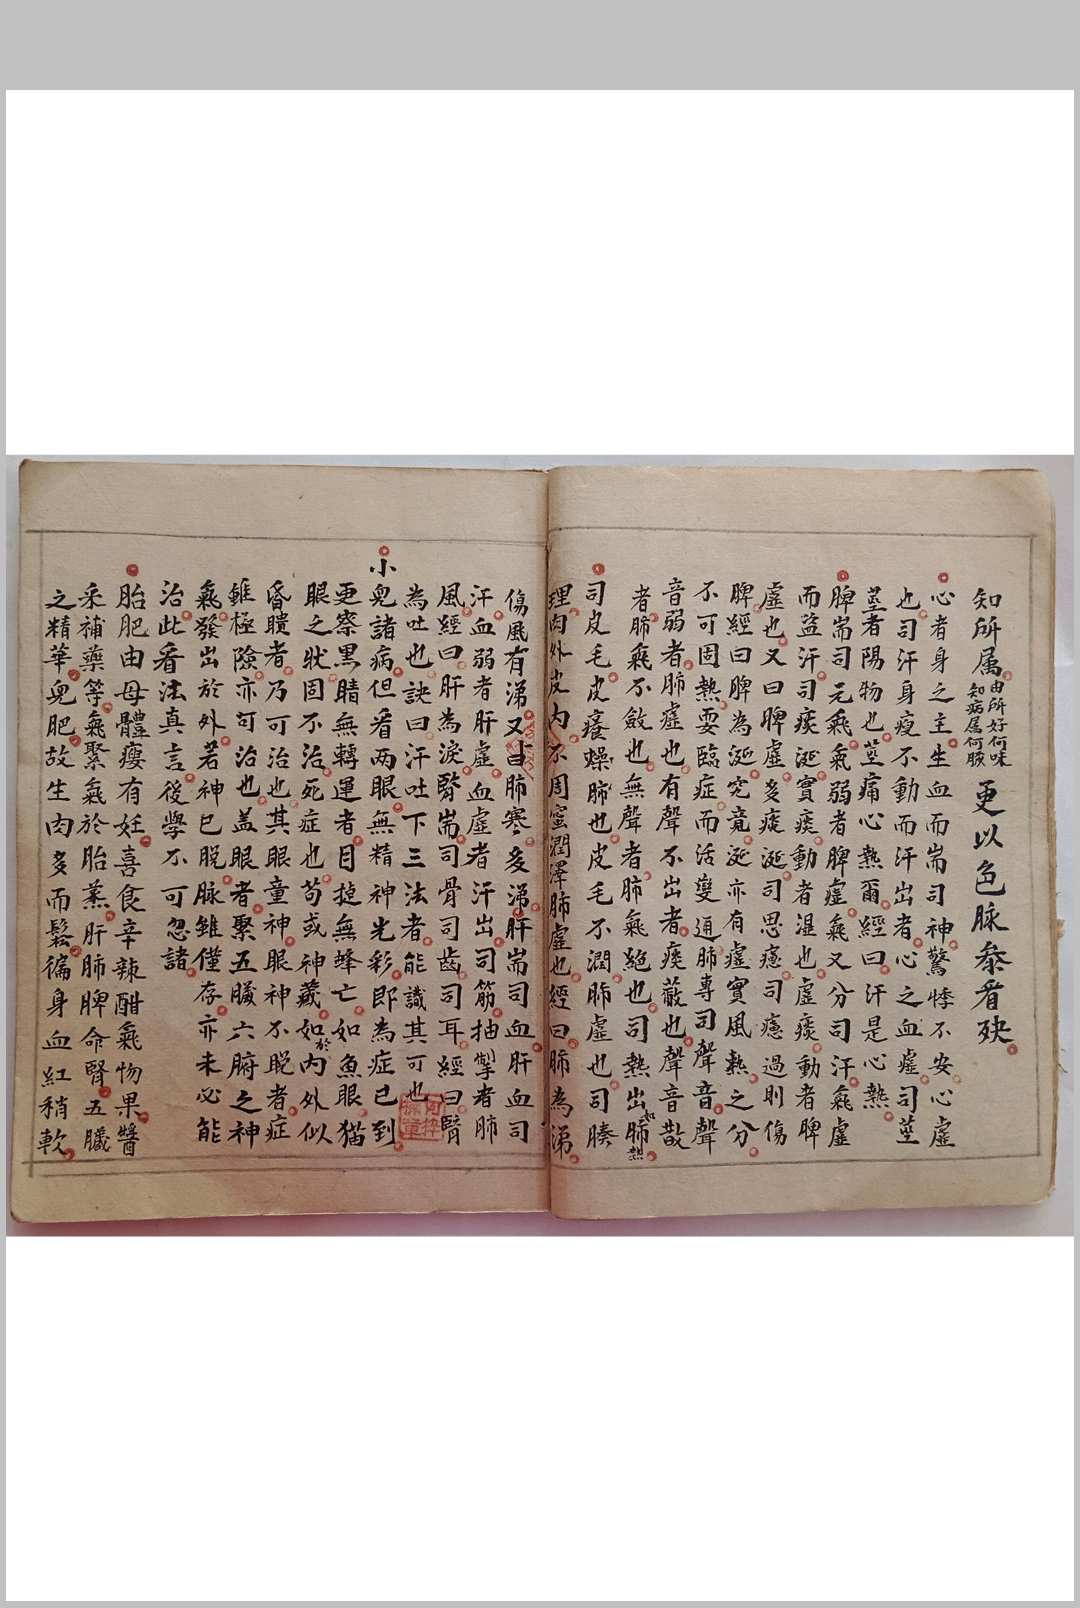 知所属由所好何味知病属何臟更以色脉叅看殃
心者身之主生血而耑司神驚悸不安心虛
也司汗身瘦不動而汗出者心之血虛司莖
莖者陽物也莖痛心熱爾經曰汗是心熱
脾耑司元氣氣弱者脾虛氣又分司汗氣虛
而盜汗司痰涎實痰動者濕也虛痰動者脾
虛也又曰脾虛多痰涎司思憶司憶過則傷
脾經曰脾為涎究竟涎亦有虛實風熱之分
不可固熱要臨症而活變通肺專司聲音聲
音弱者肺虛也有聲不出者痰蔽也聲音散
者肺氣不斂也無聲者肺氣絕也司熱出如肺熱
司皮毛皮癢燥肺也皮毛不潤肺虛也司腠
理肉外皮內不周密潤澤肺虛也經曰肺為涕
傷風有涕又曰肺寒多涕肝耑司血肝血司
汗血弱者肝虛血虛者汗出司筋抽掣者肺
風經曰肝為淚腎耑司骨司齒司耳經曰腎
為吐也訣曰汗吐下三法者能識其可也
小兒諸病但看兩眼無精神光彩即為症已到
更察黑睛無轉運者目㨗無蜂亡如魚眼猫
眼之狀固不治死症也苟或神藏如於內外似
昏瞶者乃可治也其眼童神眼神不脫者症
雖極險亦可治也盖眼者聚五臟六腑之神
氣發出於外若神已脫脉雖僅存亦未必能
治此看法真言後學不可忽諸
胎肥由母體瘦有妊喜食辛辣酣氣物果醬
禾補藥等氣聚氣於胎蒸肝肺脾命腎五臟
之精華兒肥故生肉多而鬆徧身血紅稍軟